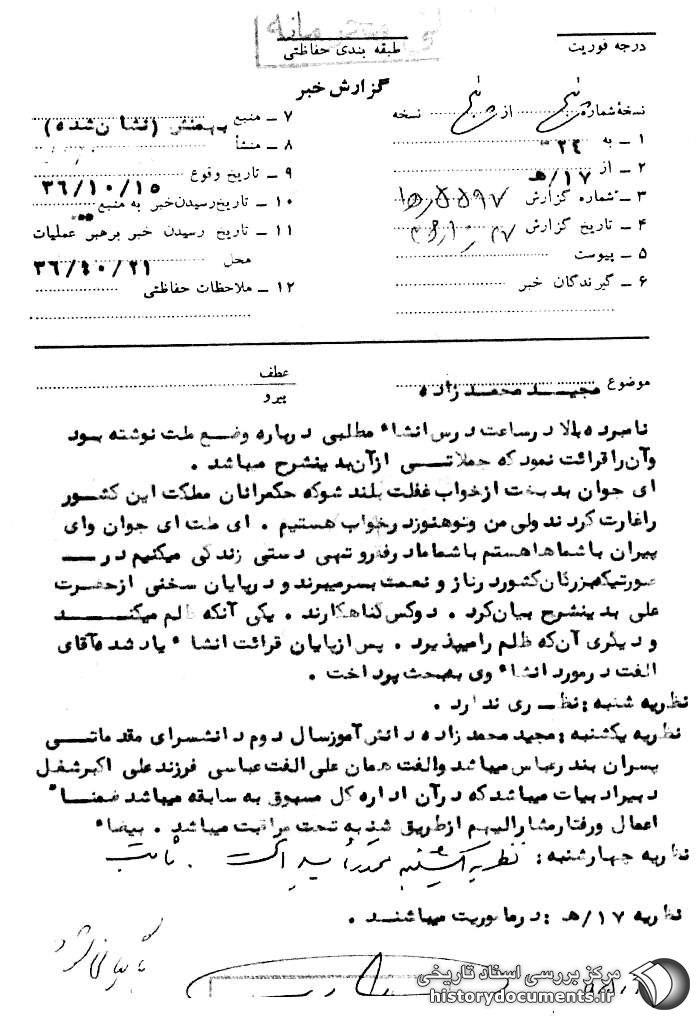 محرمانه
درجه فوریت
طبقه بندی حفاظتی
گزارش خبر
نسخهٔ شماره پنج از پنج نسخه
۱ ـ به ۲٤
۲ ـ از ۱۷/هـ
۳ ـ شماره گزارش
۴ ـ تاریخ گزارش
۵ ـ پیوست
۶ ـ گیرندگان خبر
۷ ـ منبع بهمنش (نشان شده)
۸ ـ منشأ
۹ ـ تاریخ وقوع ۳۶/۱۰/۱۵
۱۰ ـ تاریخ رسیدن خبر به منبع
۱۱ ـ تاریخ رسیدن خبر برهبر عملیات
محل ۳۶/۱۰/۲۱
۱۲ ـ ملاحظات حفاظتی
موضوع مجید محمد زاده
عطف
پیرو
نامبرده بالا در ساعت درس انشاء مطلبی درباره وضع ملت نوشته بود
وآن را قرائت نمود که جملاتی ازآن بدینشرح میباشد .
ای جوان بدبخت ازخواب غفلت بلند شوکه حکمرانان مملکت این کشور
راغارت کردند ولی من وتوهنوزدرخواب هستیم . ای ملت ای جوان وای
پیران باشماها هستم باشماما درفقرو تهی دستی زندگی میکنیم در
صورتیکه بزرگان کشوردرناز و نعمت بسرمیبرند و درپایان سخنی ازحضرت
علی بدینشرح بیان کرد . دوکس گناهکارند . یکی آنکه ظلم میکند
و دیگری آن که ظلم رامیپذیرد . پس ازپایان قرائت انشاء یاد شده آقای
الفت درمورد انشاء وی بصحت پرداخت .
نظریه شنبه : نظری ندارد .
نظریه یکشنبه : مجید محمد زاده دانش آموزسال دوم دانشسرای مقدماتی
پسران بندرعباس میباشد والفت همان علی الفت عباسی فرزندعلی اکبرشغل
دبیرادبیات میباشد که درآن اداره کل مسبوق به سابقه میباشد ضمناً
اعمال ورفتارمشارالیهم ازطریق شنبه تحت مراقبت میباشد . بیضاء
نظریه چهارشنبه : نظریه یکشنبه مورد تأیید است . ثابت
نظریه ۱۷/هـ : درماموریت میباشند .
بایگانی شود
مرکز بررسی اسناد تاریخی
historydocuments.ir